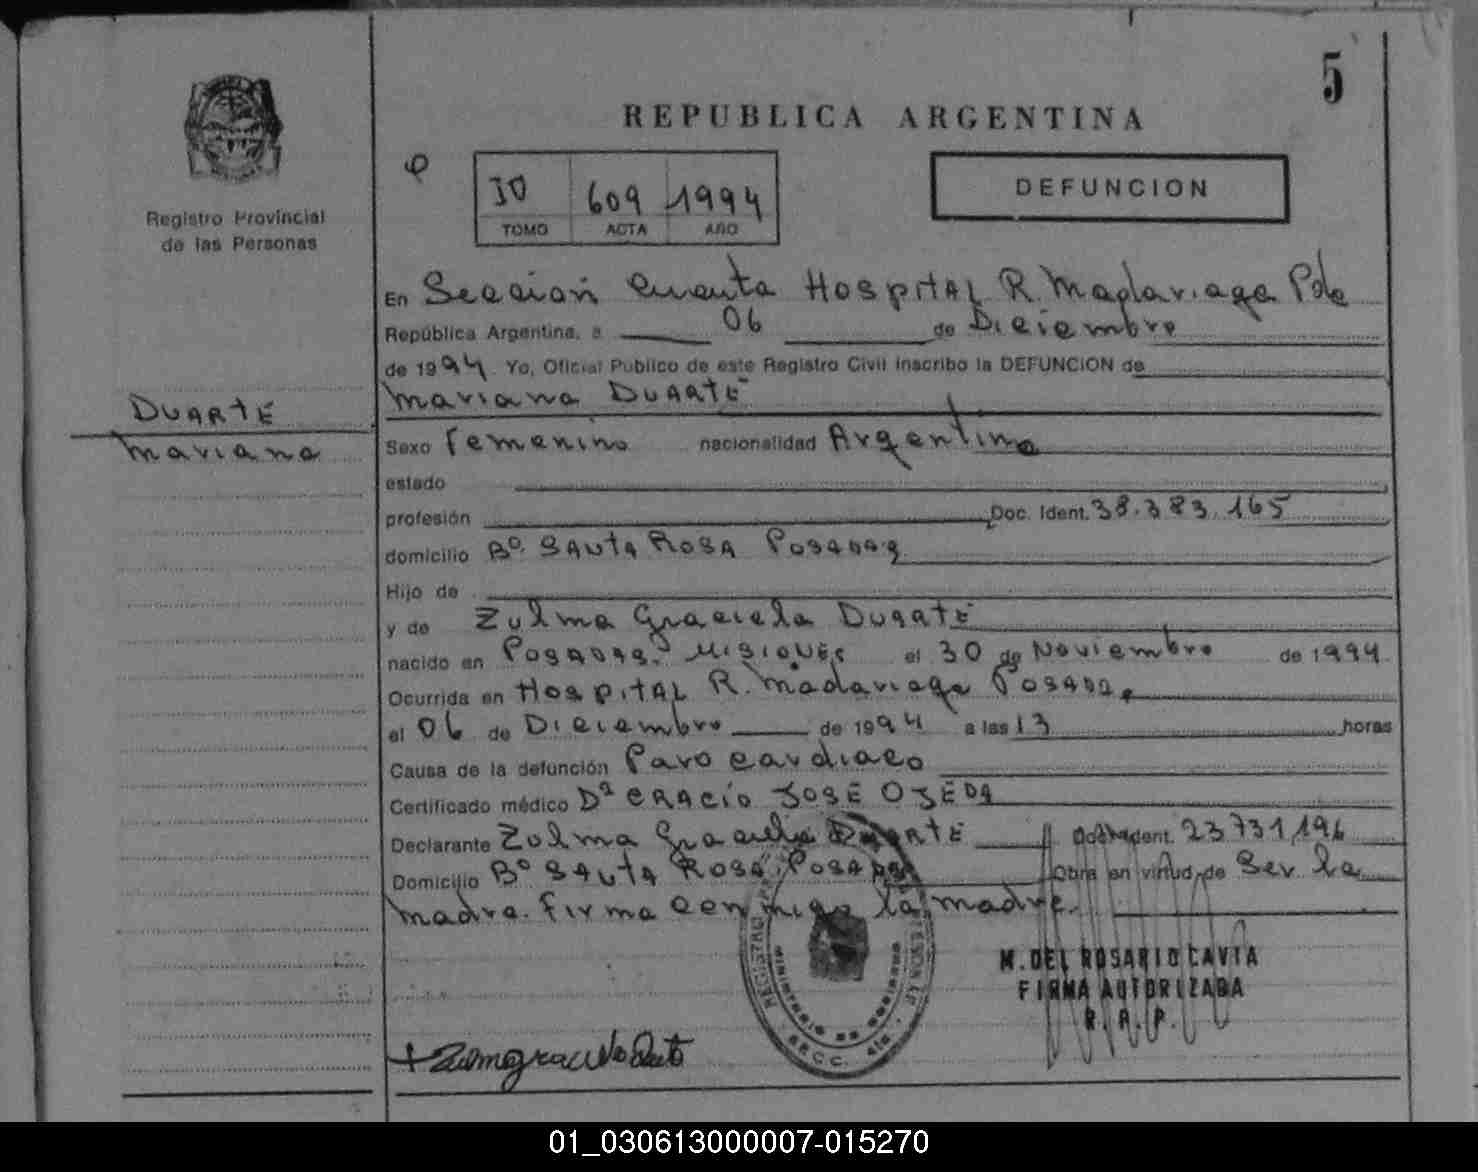 5
REPUBLICA ARGENTINA
Registro Provincial
de las Personas
609 1994
TOMO ACTA AÑO
DEFUNCION
En Seccion Cuarta Hospital R. Madariaga Pdas
República Argentina, a 06 de Diciembre
de 1994. Yo, Oficial Público de este Registro Civil inscribo la DEFUNCION de
Mariana DUARTE
DUARTE
Mariana
Sexo Femenino nacionalidad Argentina
estado
profesión Doc. Ident. 38.383.165
domicilio Bº SANTA ROSA POSADAS
Hijo de
y de Zulma Graciela DUARTE
nacido en POSADAS. MISIONES el 30 de Noviembre de 1994
Ocurrida en HOSPITAL R. Madariaga POSADAS
el 06 de Diciembre de 1994 a las 13 horas
Causa de la defunción Paro cardiaco
Certificado médico JOSE OJEDA
Declarante Zulma Graciela DUARTE Doc. Ident. 23.731.196
Domicilio Bº SANTA ROSA, POSADAS Obra en virtud de Ser la
madre. Firma conmigo la madre.
M. DEL ROSARIO CAVIA
FIRMA AUTORIZADA
R. R. P.
SECC. 4ta
01_030613000007-015270